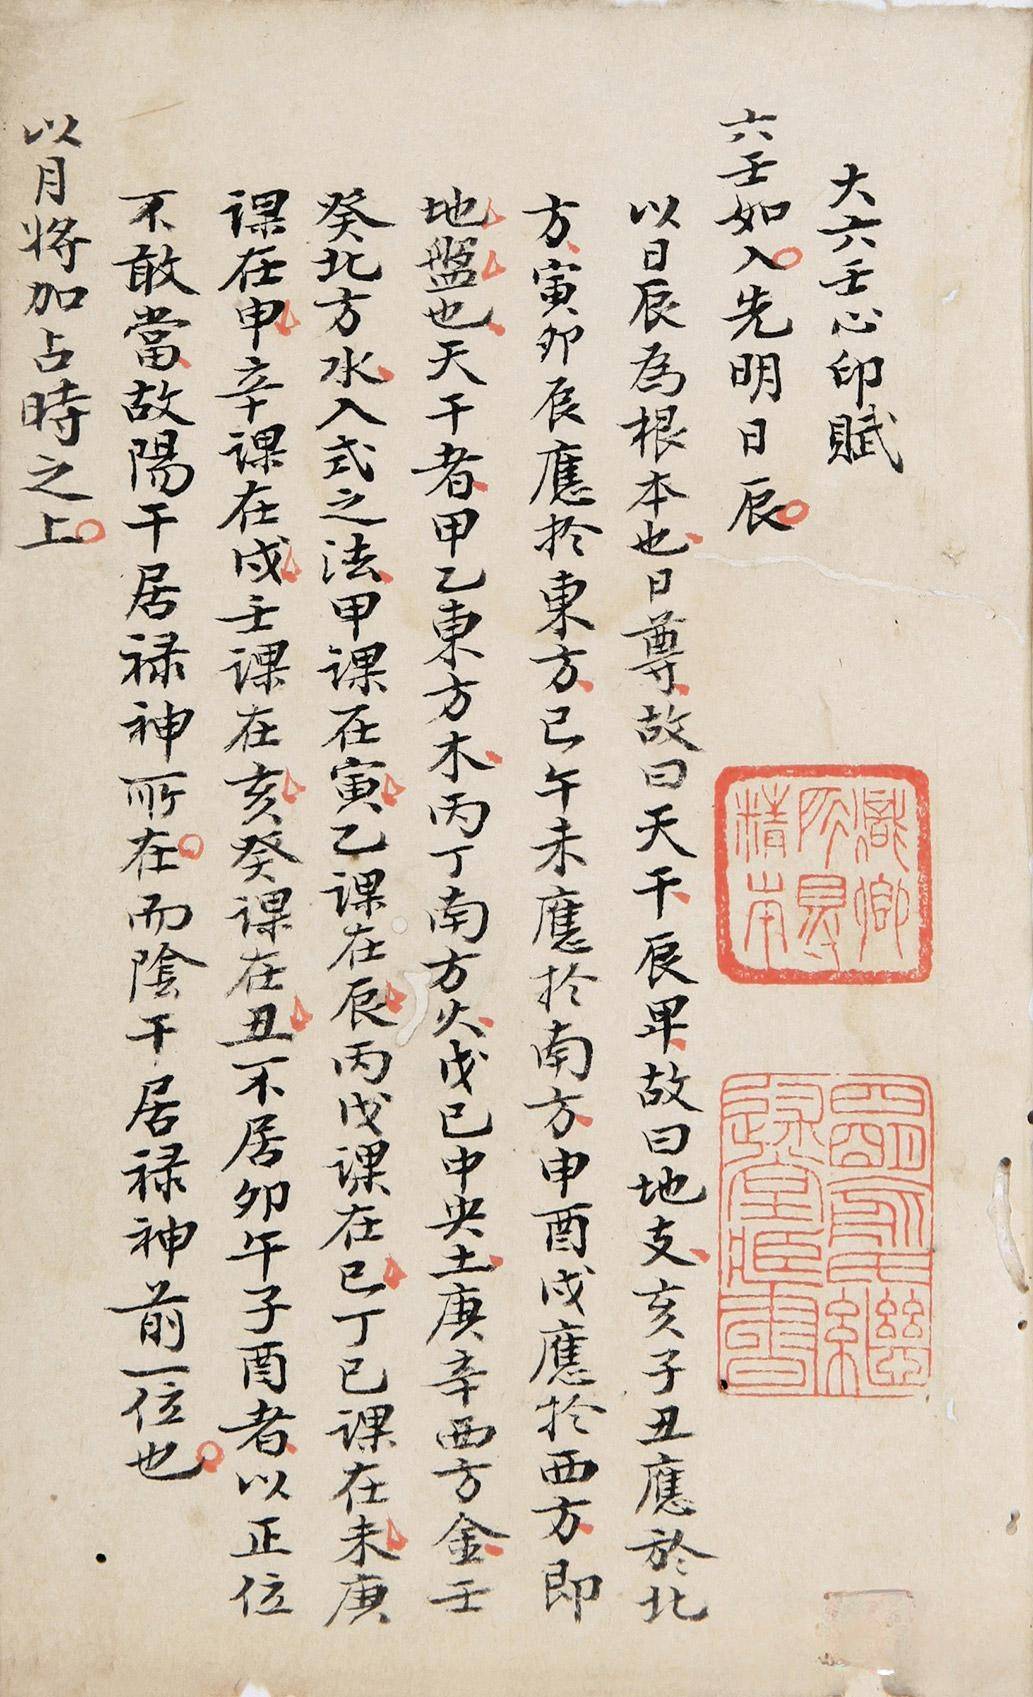 大六壬心印賦
六壬如入先明日辰
以日辰為根本也日尊故曰天干辰卑故曰地支亥子丑應於北
方寅卯辰應於東方巳午未應於南方申酉戌應於西方即
地盤也天干者甲乙東方木丙丁南方火戊己中央土庚辛西方金壬
癸北方水入式之法甲課在寅乙課在辰丙戊課在巳丁己課在未庚
課在申辛課在戌壬課在亥癸課在丑不居卯午子酉者以正位
不敢當故陽干居禄神所在而陰干居禄神前一位也
以月將加占時之上